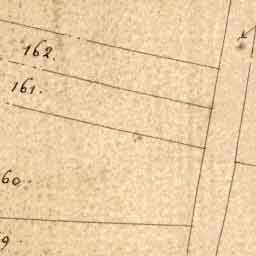 162.
161.
60
9